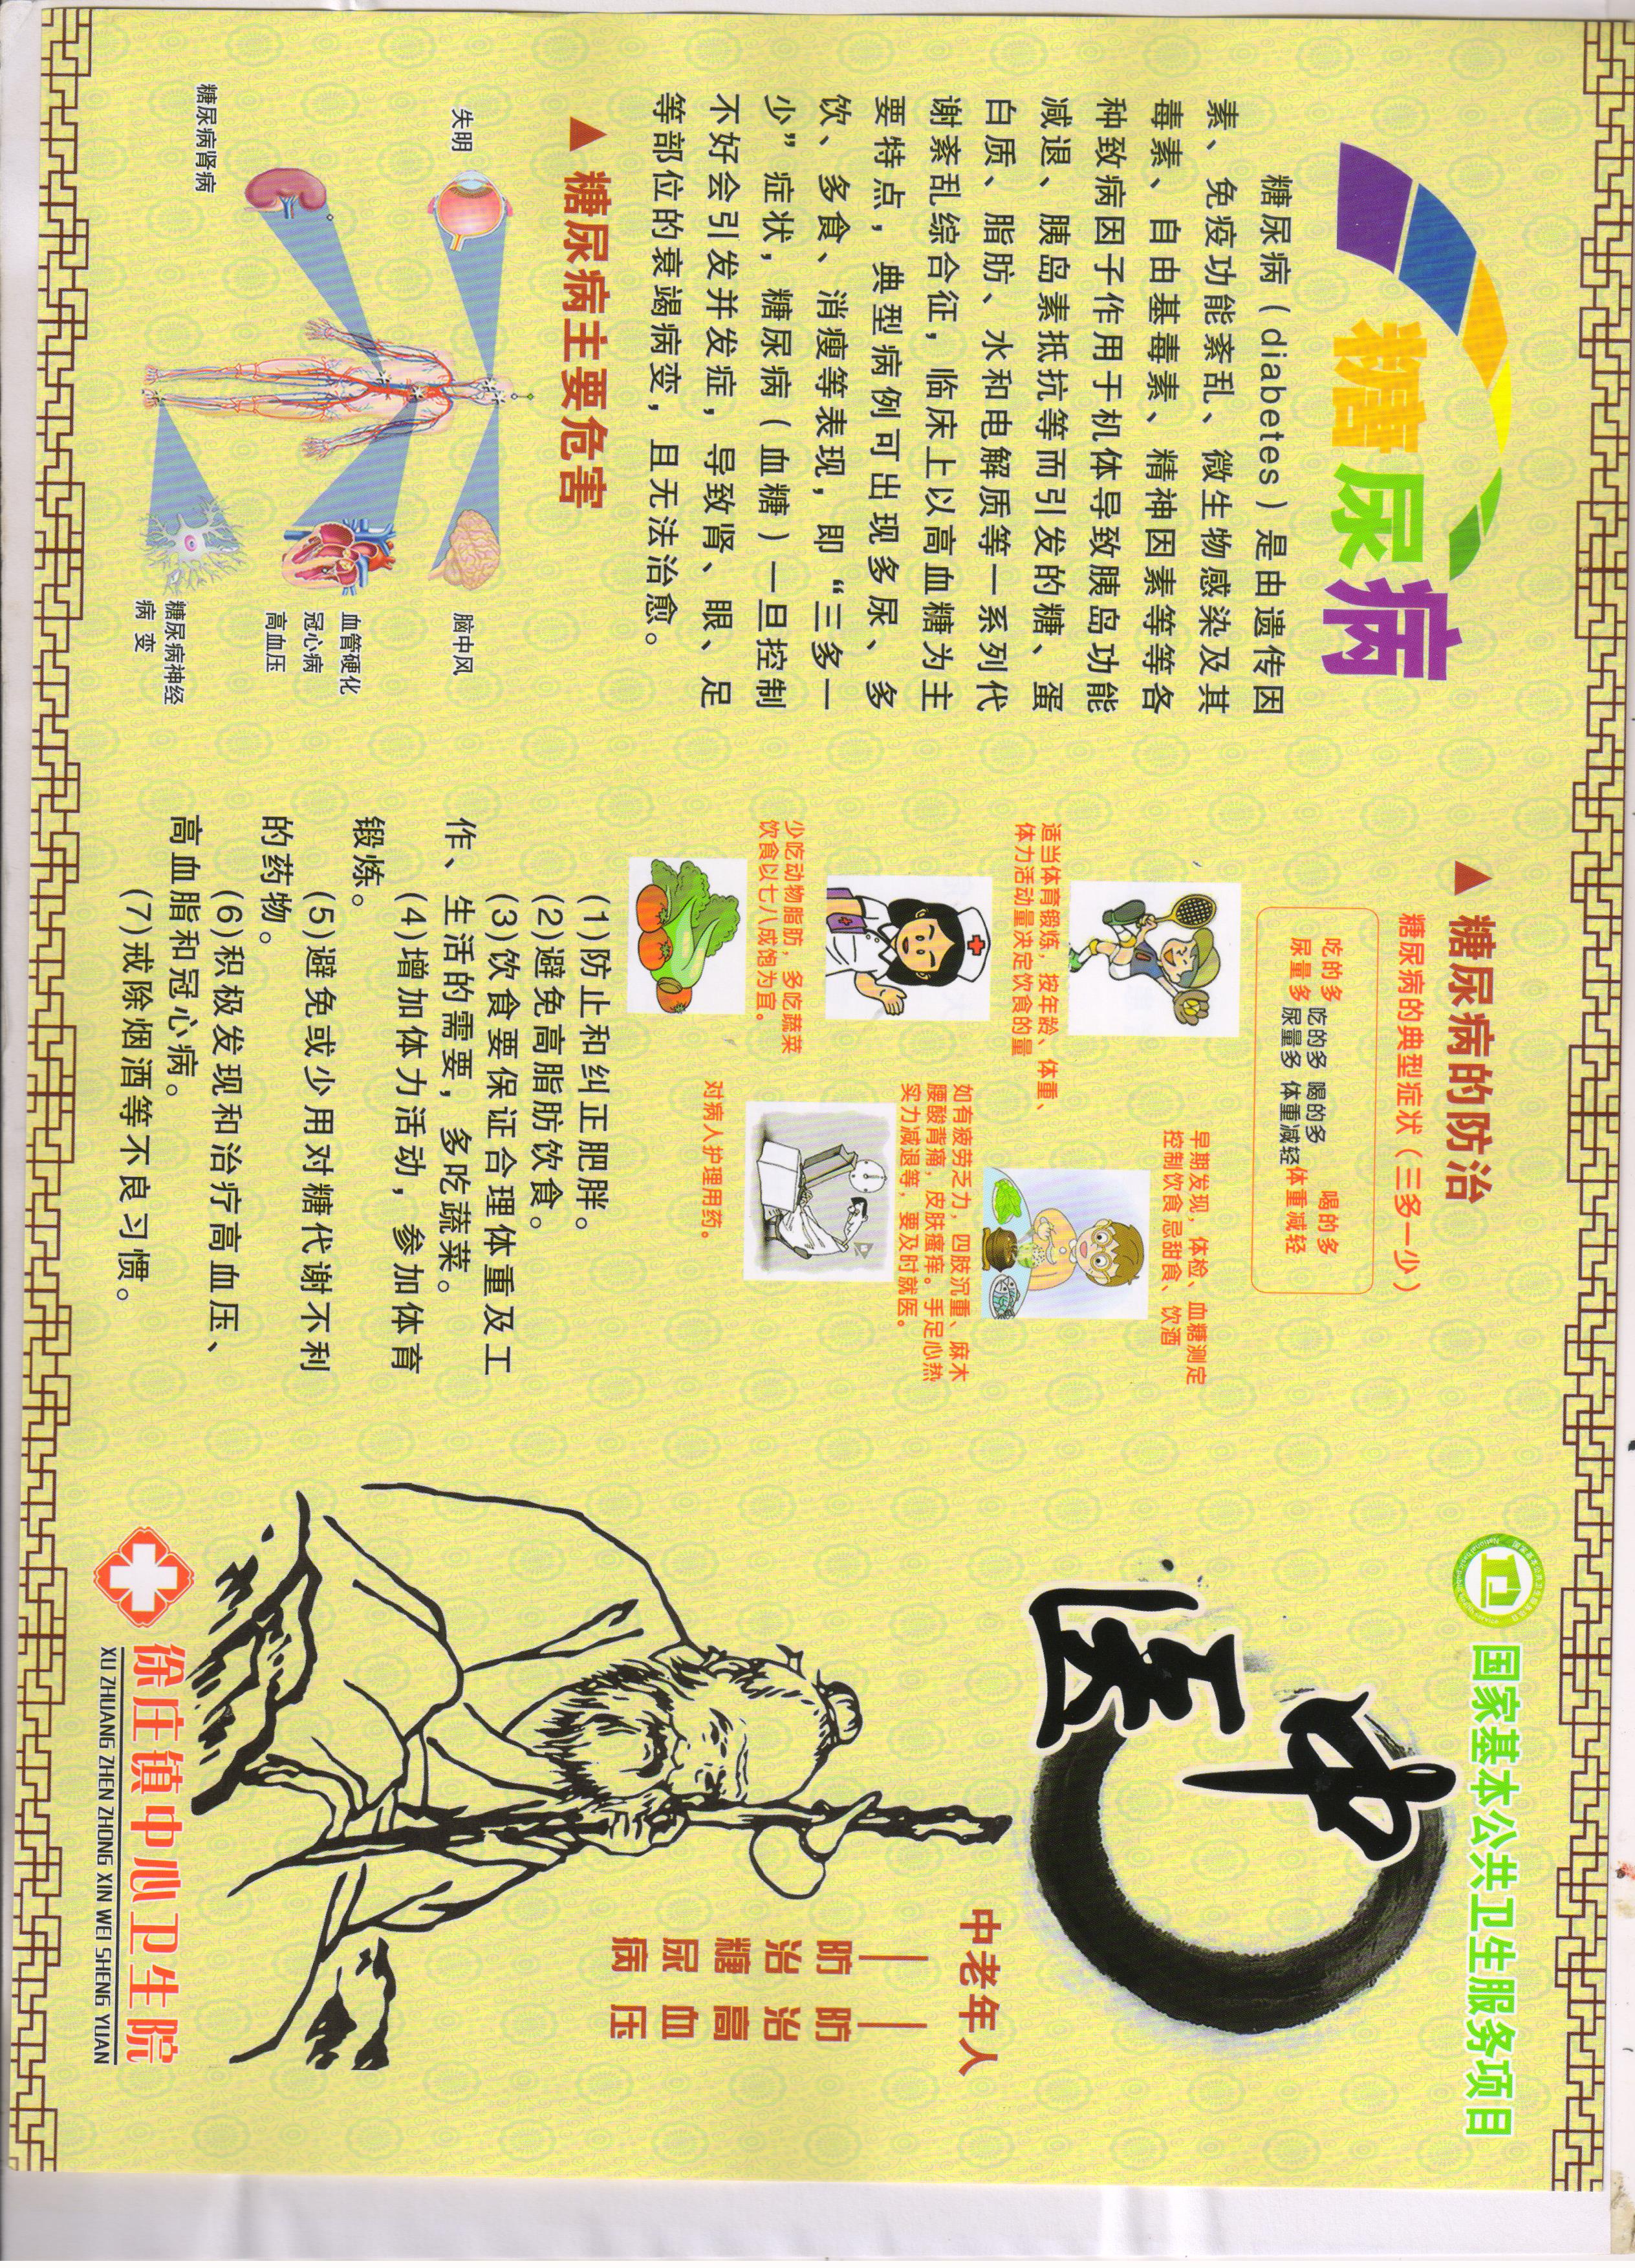 糖尿病
糖尿病（diabetes）是由遗传因
素、免疫功能紊乱、微生物感染及其
毒素、自由基毒素、精神因素等等各
种致病因子作用于机体导致胰岛功能
减退、胰岛素抵抗等而引发的糖、蛋
白质、脂肪、水和电解质等一系列代
谢紊乱综合征，临床上以高血糖为主
要特点，典型病例可出现多尿、多
饮、多食、消瘦等表现，即“三多一
少”症状，糖尿病（血糖）一旦控制
不好会引发并发症，导致肾、眼、足
等部位的衰竭病变，且无法治愈。
▲ 糖尿病主要危害
失明
脑中风
血管硬化
冠心病
高血压
糖尿病肾病
糖尿病神经
病 变
▲ 糖尿病的防治
糖尿病的典型症状（三多一少）
吃的多 吃的多 喝的多 喝的多
尿量多 尿量多 体重减轻体重减轻
早期发现，体检、血糖测定
控制饮食 忌甜食、饮酒
适当体育锻炼，按年龄、体重、
体力活动量决定饮食的量
如有疲劳乏力，四肢沉重、麻木
腰酸背痛，皮肤瘙痒。手足心热
实力减退等，要及时就医。
少吃动物脂肪，多吃蔬菜
饮食以七八成饱为宜。
对病人护理用药。
(1)防止和纠正肥胖。
(2)避免高脂肪饮食。
(3)饮食要保证合理体重及工
作、生活的需要，多吃蔬菜。
(4)增加体力活动，参加体育
锻炼。
(5)避免或少用对糖代谢不利
的药物。
(6)积极发现和治疗高血压、
高血脂和冠心病。
(7)戒除烟酒等不良习惯。
国家基本公共卫生服务项目
中医
中老年人
防治高血压
防治糖尿病
徐庄镇中心卫生院
XU ZHUANG ZHEN ZHONG XIN WEI SHENG YUAN